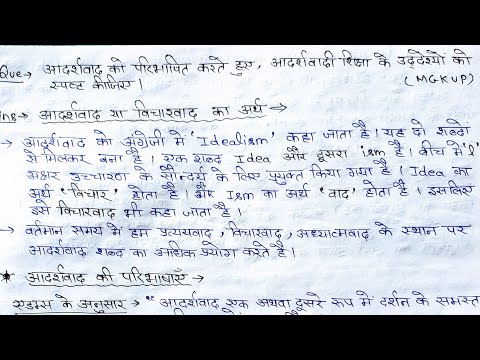 Que→ आदर्शवाद को परिभाषित करते हुए, आदर्शवादी शिक्षा के उद्देश्यों को
स्पष्ट कीजिए। (MGKVP)
Ans→ आदर्शवाद या विचारवाद का अर्थ→
→ आदर्शवाद को अंग्रेजी में 'Idealism' कहा जाता है। यह दो शब्दों
से मिलकर बना है। एक शब्द Idea और दूसरा ism है। बीच में 'l'
अक्षर उच्चारण के सौन्दर्य के लिए प्रयुक्त किया गया है। Idea का
अर्थ 'विचार' होता है। और Ism का अर्थ 'वाद' होता है। इसलिए
इसे विचारवाद भी कहा जाता है।
→ वर्तमान समय में हम प्रत्ययवाद, विचारवाद, अध्यात्मवाद के स्थान पर
आदर्शवाद शब्द का अधिक प्रयोग करते है।
* आदर्शवाद की परिभाषाएँ→
एडम्स के अनुसार→ " आदर्शवाद एक अथवा दूसरे रूप में दर्शन के समस्त